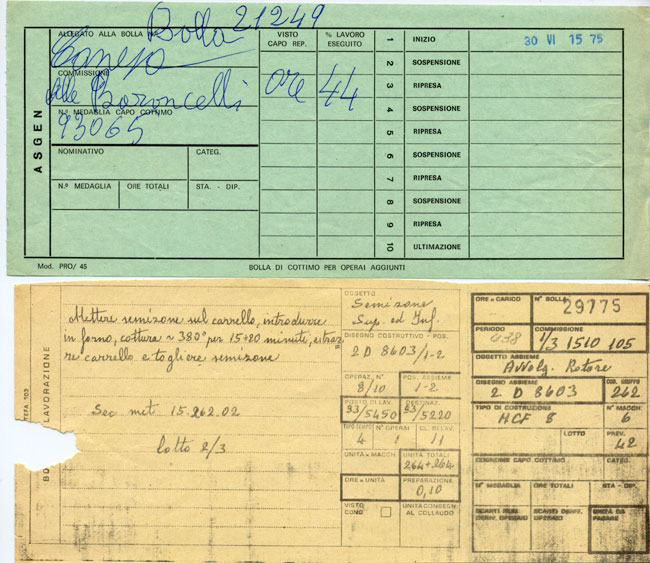 ASGEN
ALLEGATO ALLA BOLLA
Bolla 21249
COMMISSIONE
alle Baroncelli
N.º MEDAGLIA CAPO COTTIMO
93065
NOMINATIVO
CATEG.
N.º MEDAGLIA
ORE TOTALI
STA. - DIP.
VISTO CAPO REP.
% LAVORO ESEGUITO
ore 44
1 INIZIO 30 VI 15 75
2 SOSPENSIONE
3 RIPRESA
4 SOSPENSIONE
5 RIPRESA
6 SOSPENSIONE
7 RIPRESA
8 SOSPENSIONE
9 RIPRESA
10 ULTIMAZIONE
Mod. PRO/ 45
BOLLA DI COTTIMO PER OPERAI AGGIUNTI
LAVORAZIONE
BO
103
Mettere semizone sul carrello, introdurre
in forno, cottura ~ 380° per 15÷20 minuti, estrar
re carrello e togliere semizone
Sec. met. 15.262.02
lotto 2/3
OGGETTO
Semizone
Sup. ed Inf.
DISEGNO COSTRUTTIVO - POS.
2 D 8603/1-2
OPERAZ. N°
8/10
POS. ASSIEME
1-2
POSTO DI LAV.
93/5450
DESTINAZ.
93/5220
N° OPERAI
CL. RELAV.
4 1 11
UNITÀ x MACCH.
UNITÀ TOTALI
264+264
ORE x UNITÀ
PREPARAZIONE
0,10
VISTO CONO
UNITÀ CONSEGN. AL COLLAUDO
ORE x CARICO
N° BOLLA
29775
PERIODO
038
COMMISSIONE
1/3 1510 105
OGGETTO ASSIEME
Avvolg. Rotore
DISEGNO ASSIEME
2 D 8603
COD. GRUPPO
262
TIPO DI COSTRUZIONE
HCF 8
N° MACCH.
6
LOTTO
PREV.
42
COGNOME CAPO COTTIMO
CATEG.
N° MEDAGLIA
ORE TOTALI
STA - DIP.
UNITÀ DA PAGARE